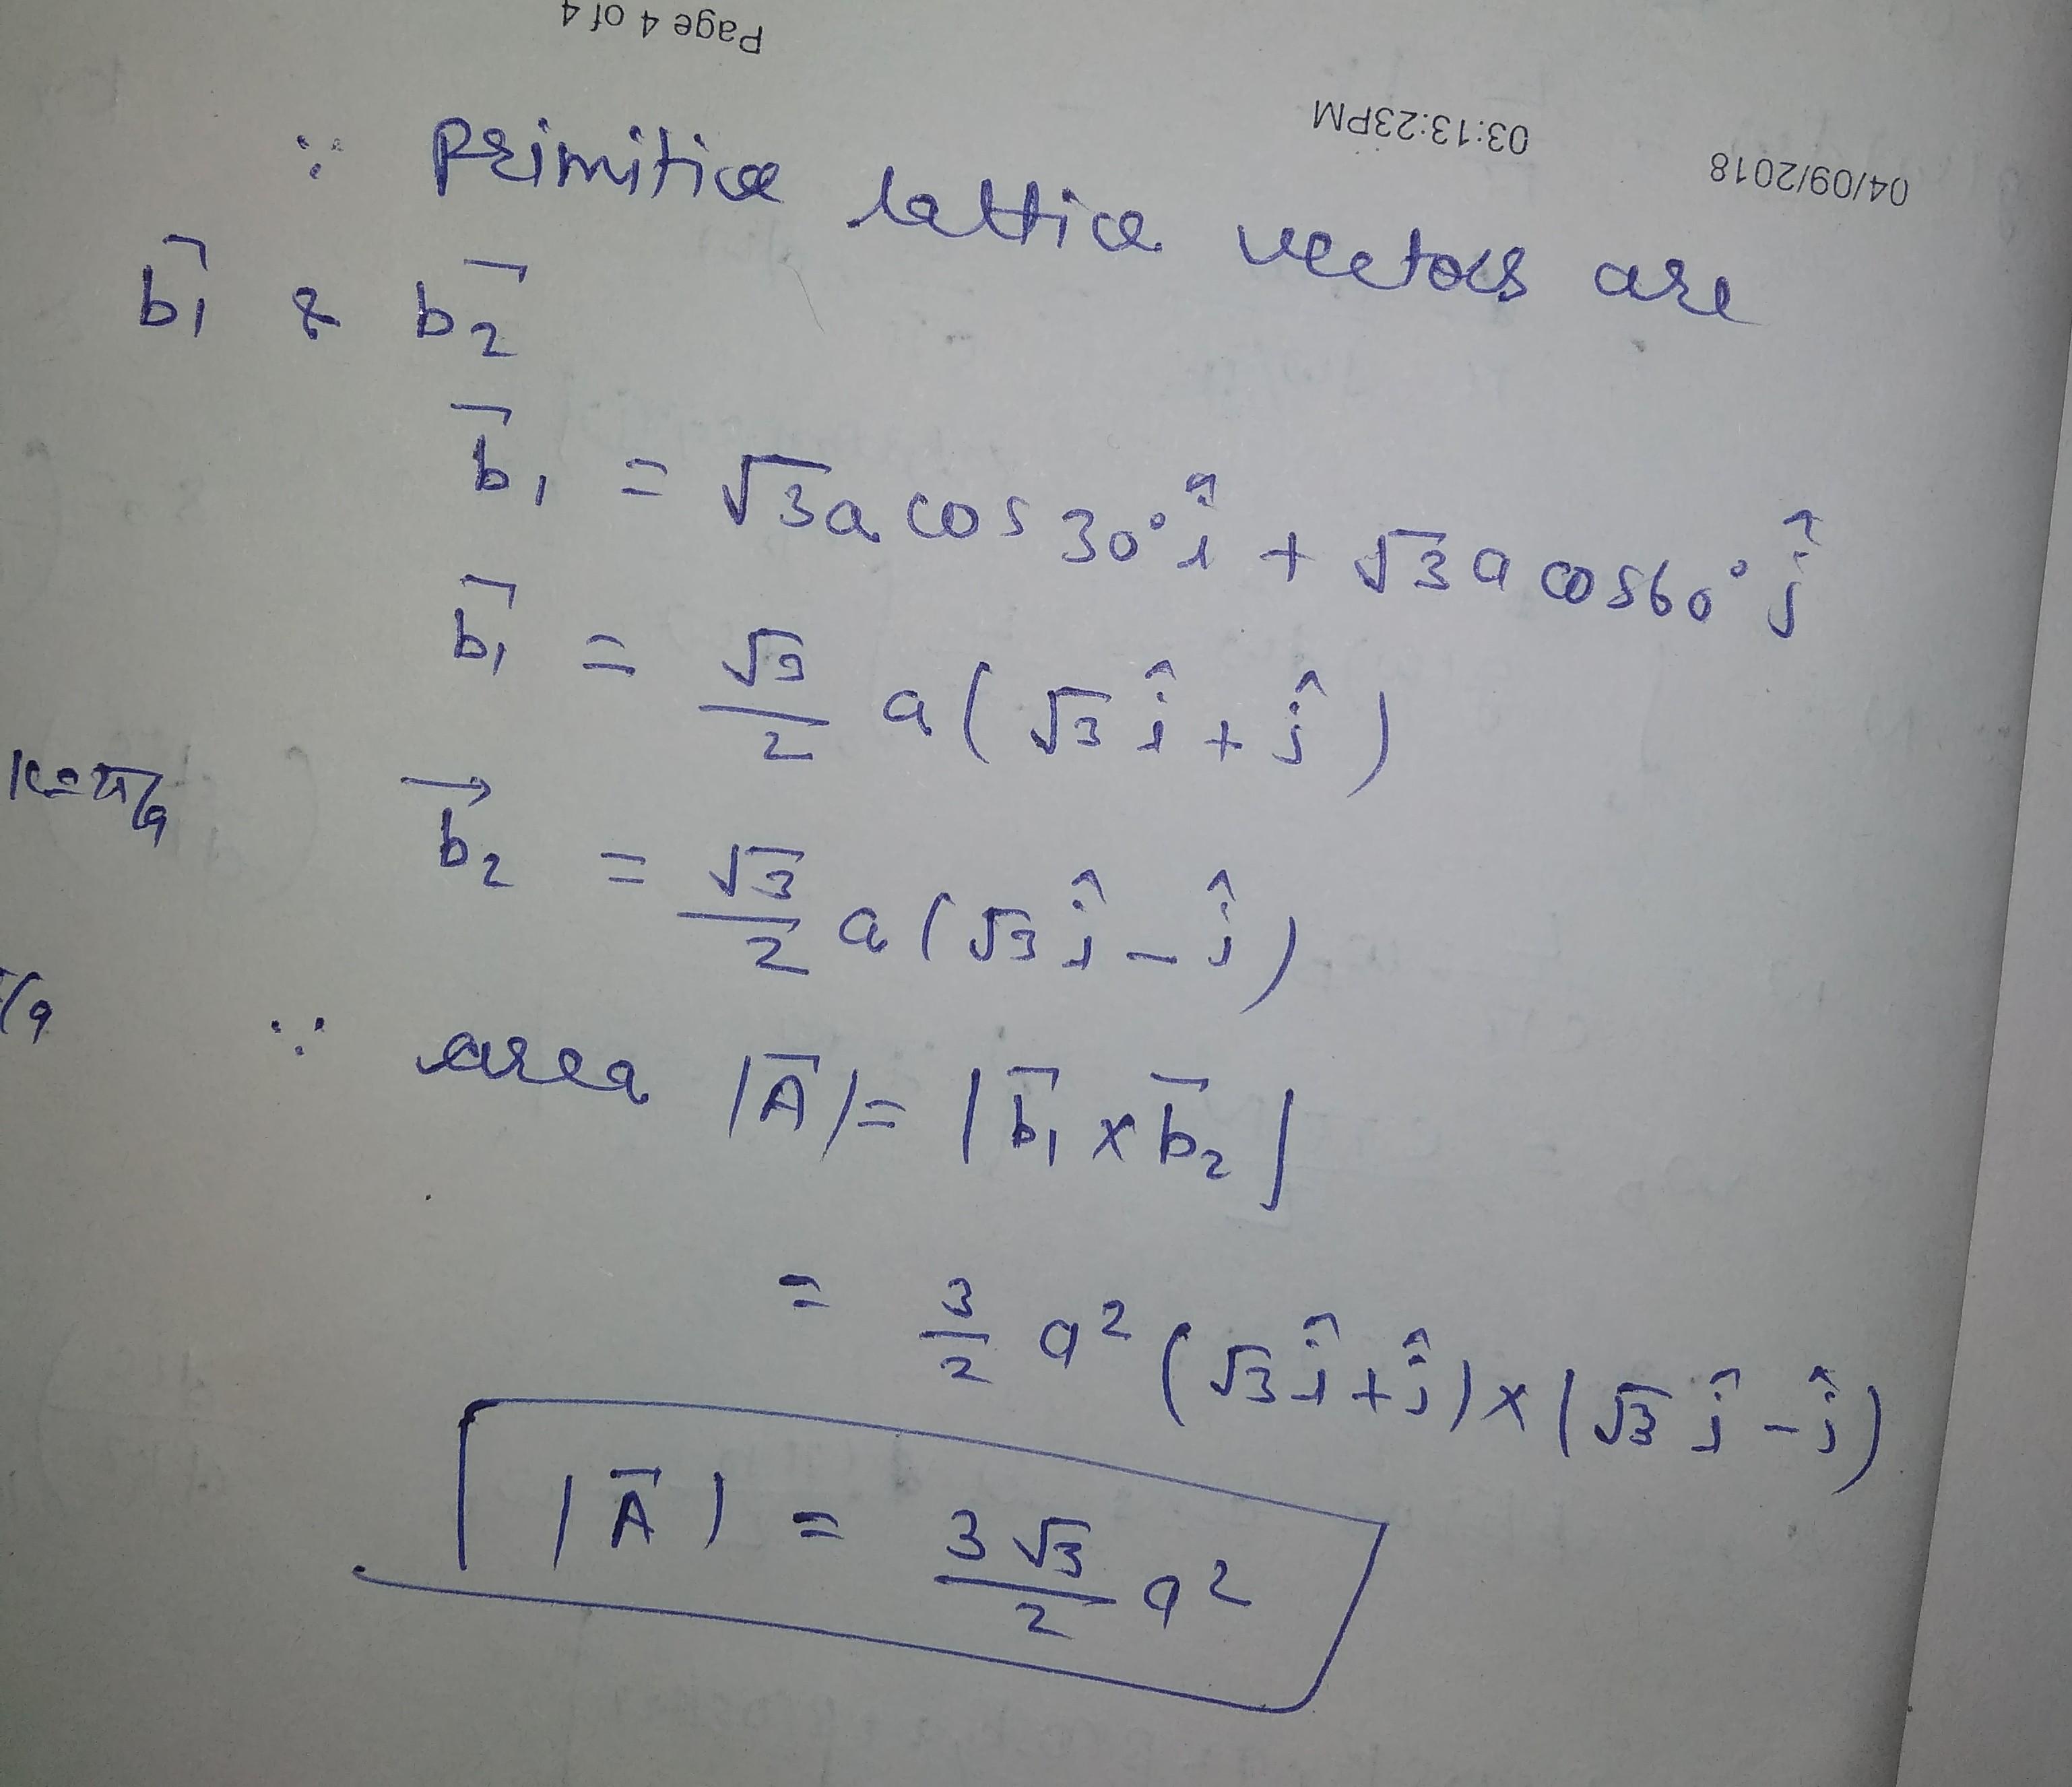 Page 4 of 4
03:13:23PM
04/09/2018
∵ primitive lattice vectors are
b⃗₁ & b⃗₂
b⃗₁ = √3a cos 30° î + √3 a cos60° ĵ
b⃗₁ = √3/2 a(√3 î + ĵ)
K=π/a
b⃗₂ = √3/2 a(√3 î - ĵ)
/a
∵ area |A⃗| = |b⃗₁ × b⃗₂|
= 3/2 a² (√3 î + ĵ) × (√3 ĵ - ĵ)
|A⃗| = 3√3/2 a²